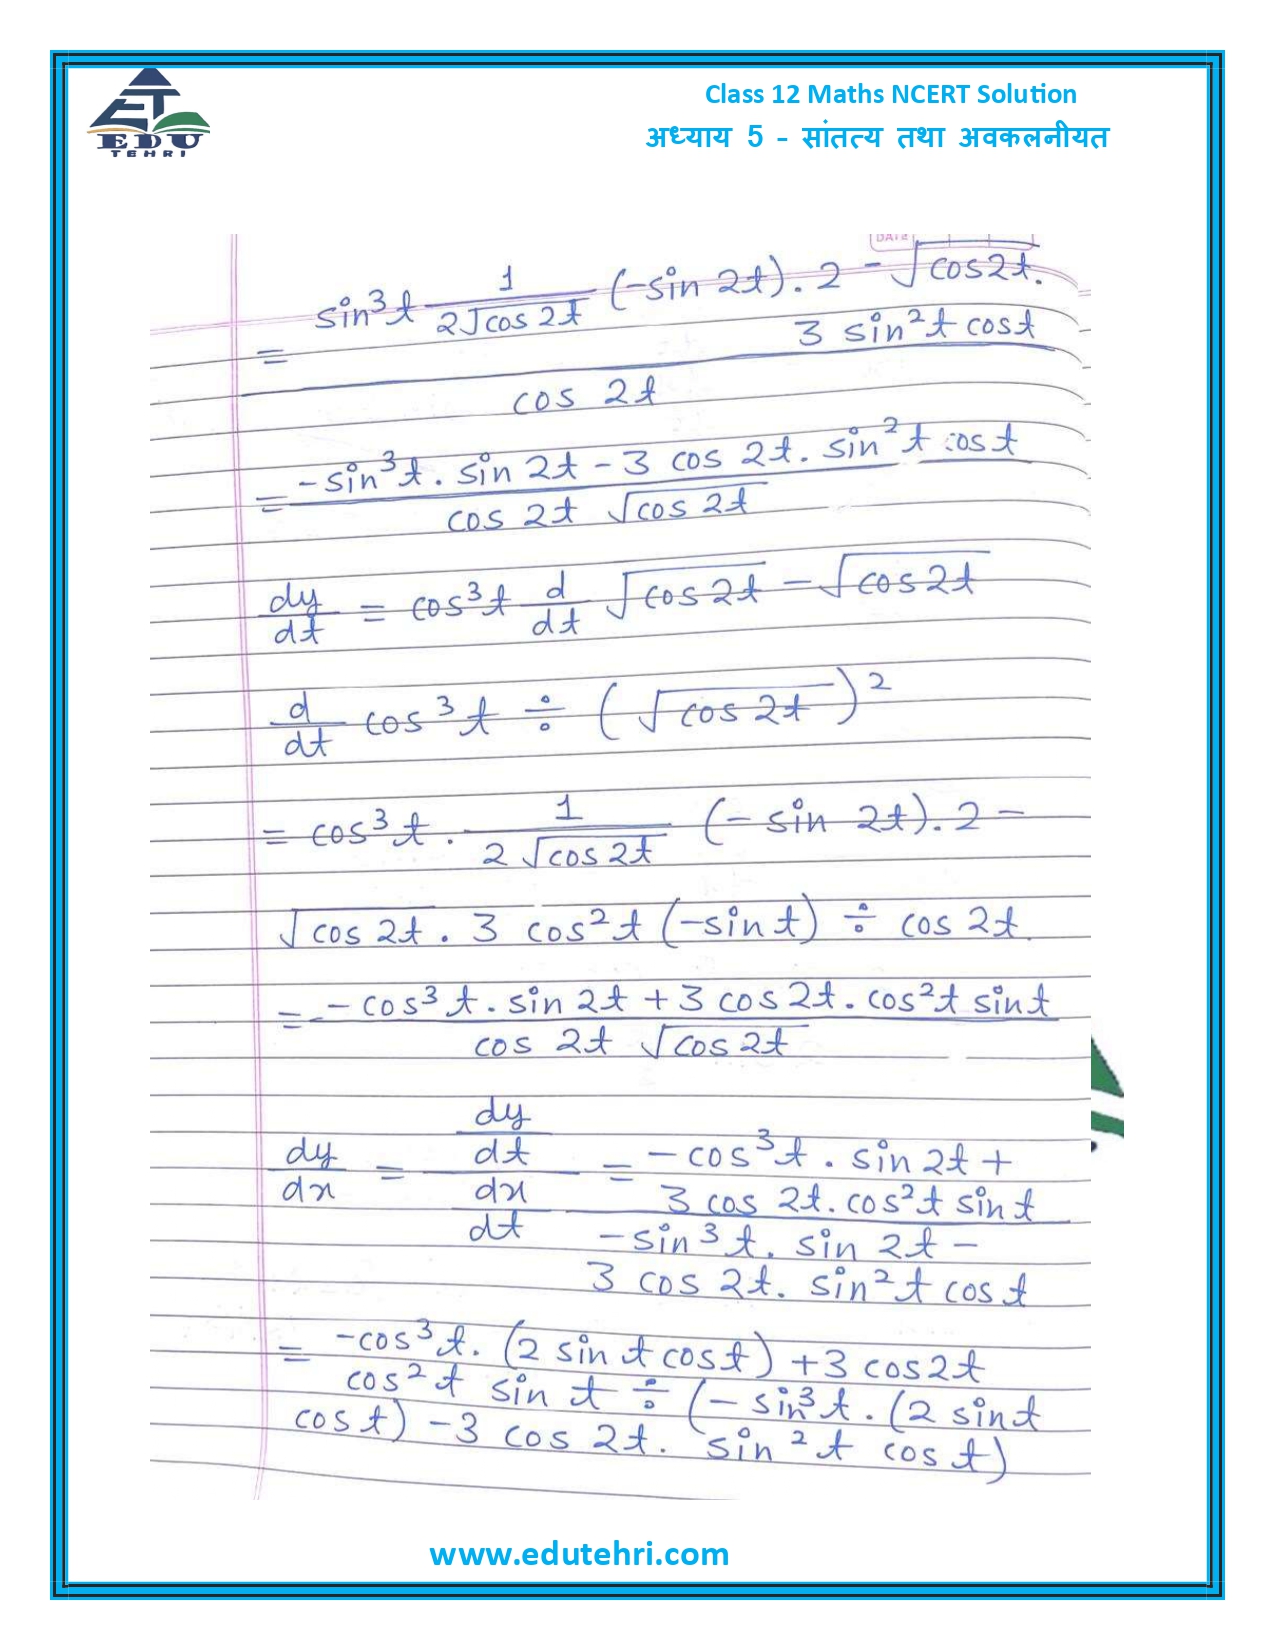 EDU
TEHRI
Class 12 Maths NCERT Solution
अध्याय 5 - सांतत्य तथा अवकलनीयत
DATE
= sin³t 1/(2√cos 2t) (-sin 2t).2 - √cos2t.
3 sin²t cost
cos 2t
= -sin³t. sin 2t - 3 cos 2t. sin²t cost
cos 2t √cos 2t
dy/dt = cos³t d/dt √cos 2t - √cos2t
d/dt cos³t ÷ (√cos 2t)²
= cos³t. 1/(2√cos2t) (-sin 2t).2 -
√cos 2t. 3 cos²t (-sint) ÷ cos 2t
= -cos³t. sin 2t + 3 cos2t. cos²t sint
cos 2t √cos 2t
dy/dx = (dy/dt)/(dx/dt) = -cos³t. sin 2t +
3 cos 2t. cos²t sint
-sin³t. sin 2t -
3 cos 2t. sin²t cost
= -cos³t. (2 sint cost) + 3 cos2t
cos²t sin t ÷ (-sin³t. (2 sint
cost) - 3 cos 2t. sin²t cost)
www.edutehri.com